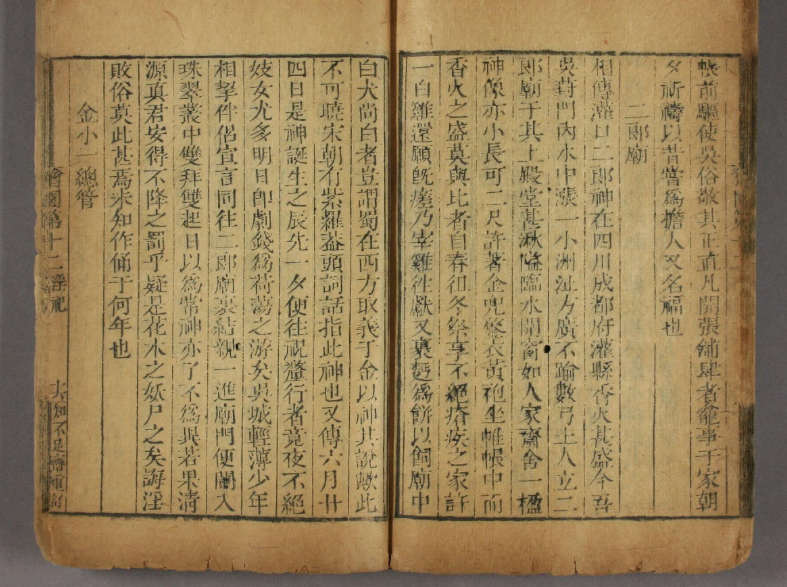 帳前驅使吳俗敬其正直凡開張鋪肆者龕事于家朝
夕祈禱以昔嘗為擔人又名福也
二郎廟
相傳灌口二郎神在四川成都府灌縣香火甚盛今吾
吳葑門內水中漲一小洲沚方廣不踰數弓土人立二
郎廟于其上殿堂甚湫隘臨水開窗如人家齋舍一楹
神像亦小長可二尺許著金兜鍪衣黃袍坐帷帳中而
香火之盛莫與比者自春徂冬祭享不絕瘡疾之家許
一白雞還願既瘥乃宰雞徃獻又裹麪為餅以飼廟中
白犬尚白者豈謂蜀在西方取義于金以神其說歟此
不可曉宋朝有紫羅蓋頭詞話指此神也又傳六月廿
四日是神誕生之辰先一夕便往祝釐行者竟夜不絕
妓女尤多明日即劇錢為荷蕩之游矣吳城輕薄少年
相挈伴侶宣言同往二郎廟裏結親一進廟門便闌入
珠翠叢中雙拜雙起日以為常神亦了不為異若果清
源真君安得不降之罰乎疑是花木之妖尸之矣誨淫
敗俗莫此甚焉未知作俑于何年也
金小一總管
獪園第十二 淫祀
知不足齋